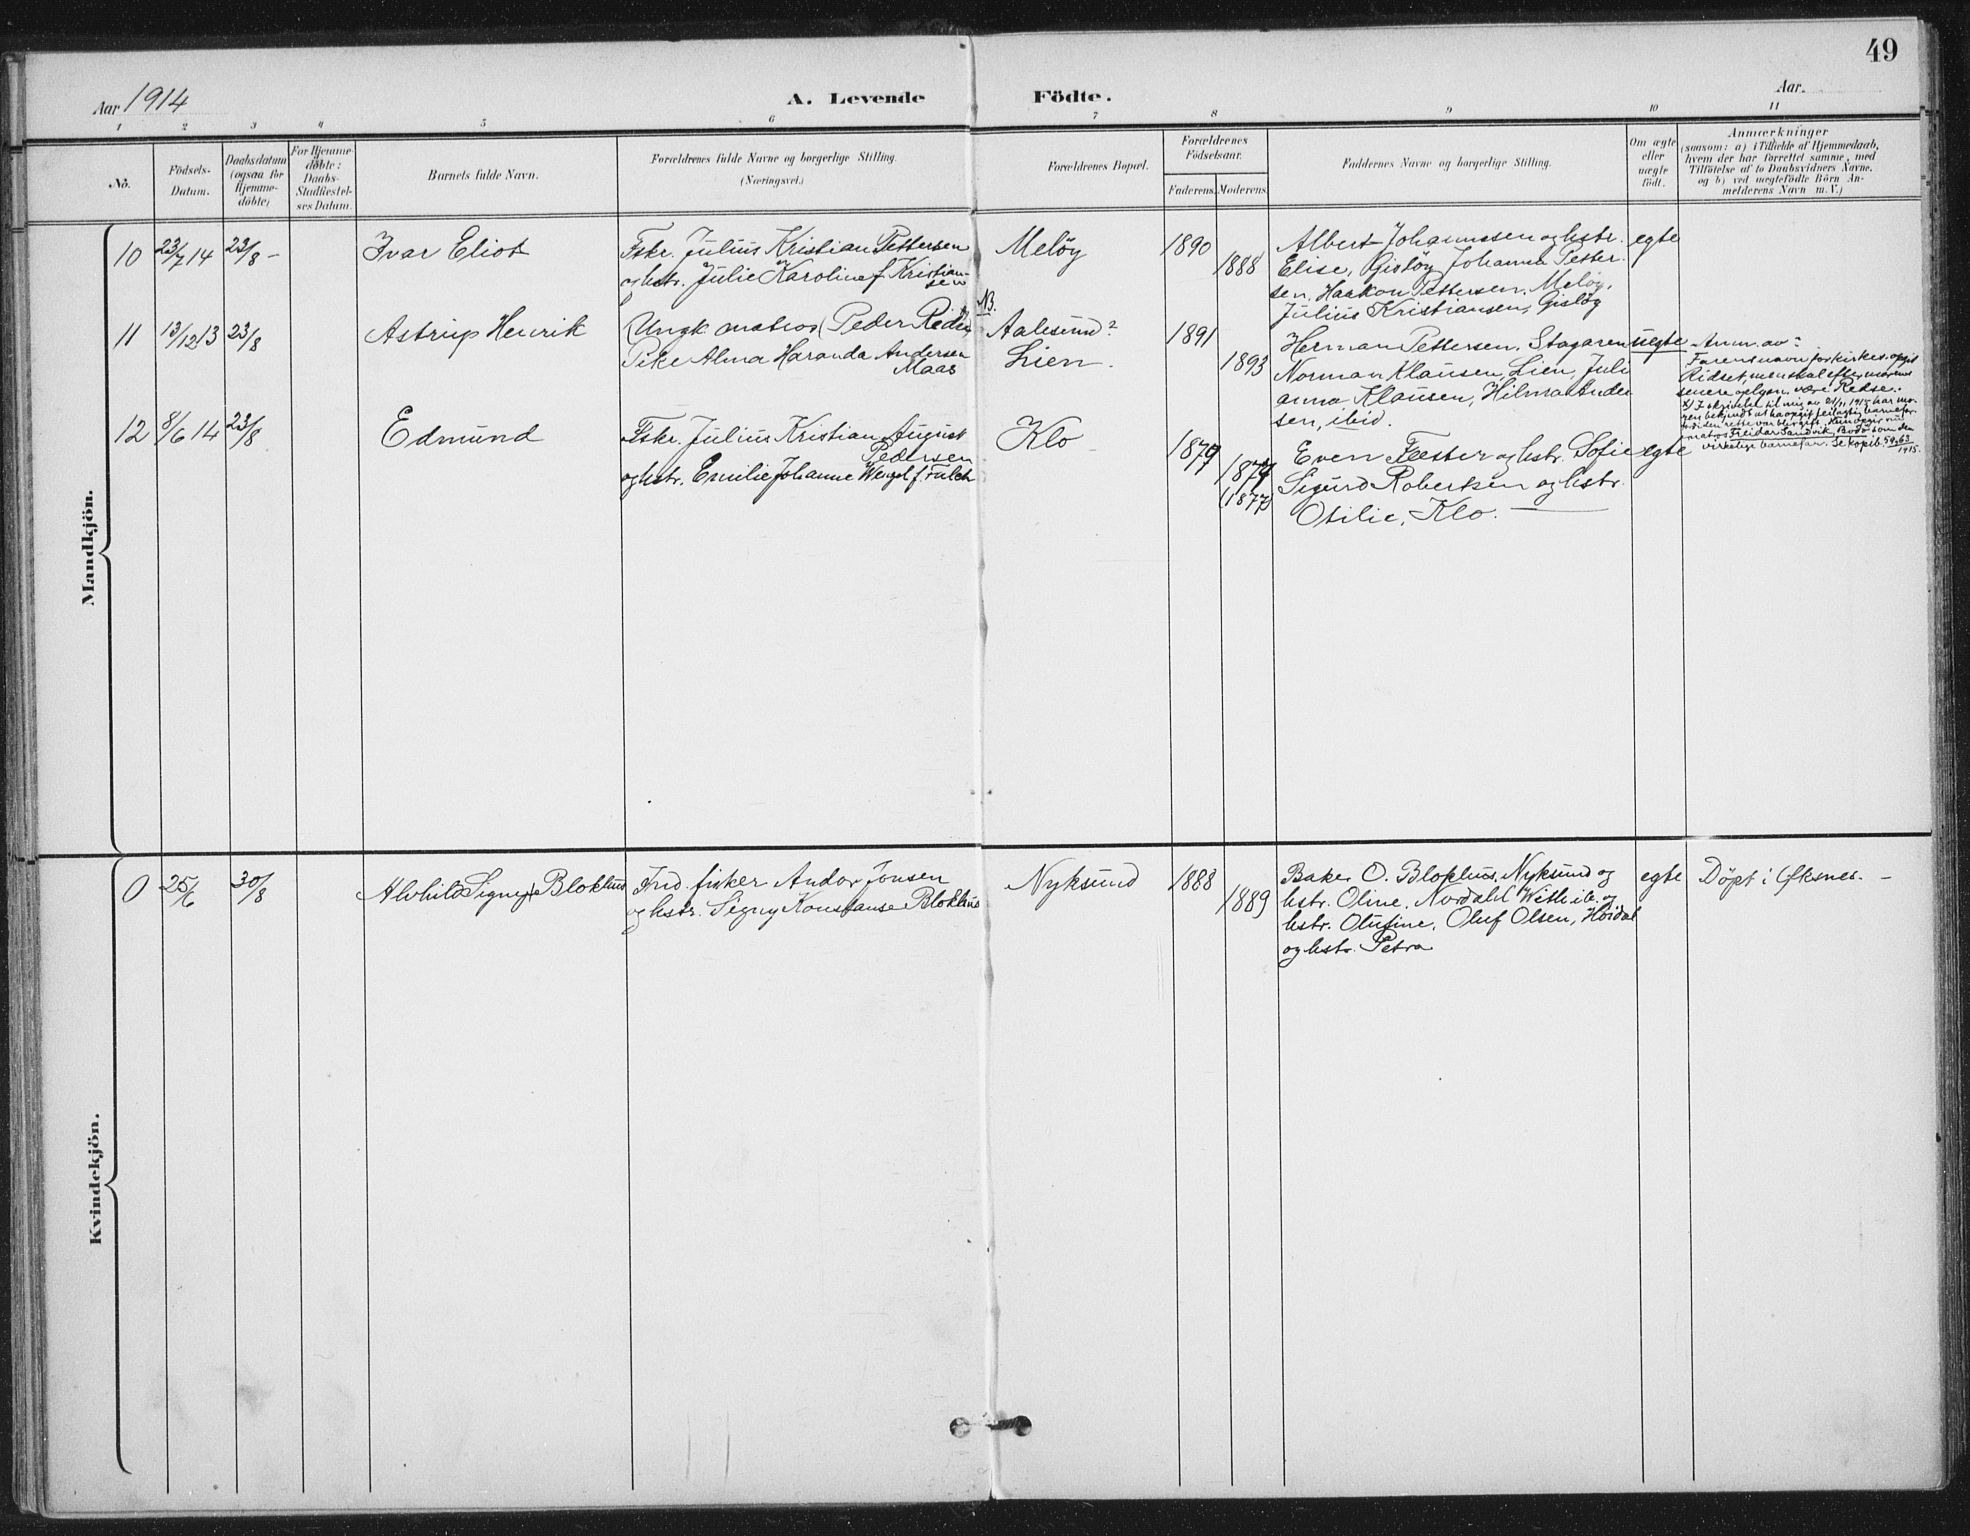 49
Aar 1914
A. Levende
Födte.
Aar.
1 2 3 4 5 6 7 8 9 10 11
No.
Födsels-
Datum.
Daabsdatum
(ogsaa for
Hjemme-
döbte)
For Hjemme-
döbte:
Daabs-
Stadfæstel-
ses Datum.
Barnets fulde Navn.
Forældrenes fulde Navne og borgerlige Stilling.
(Næringsvei.)
Forældrenes Bopæl.
Forældrenes
Födselsaar.
Faderens. Moderens.
Faddernes Navne og borgerlige Stilling.
Om ægte
eller
uægte
födt.
Anmærkninger
(saasom: a) i Tilfælde af Hjemmedaab,
hvem der har forrettet samme, med
Tilföielse af to Daabsvidners Navne,
og b) ved uægtefödte Börn An-
melderens Navn m. V.)
Mandkjön.
10 23/7 14 23/8 –
Ivar Eliot
Fskr. Julius Kristian Pettersen
og hstr. Julie Karoline f. Kristian-
sen
Meløy
1890
1888
Albert Johannssen og hstr.
Elise, Gisløy, Johanna Petter-
sen, Haakon Pettersen, Meløy,
Julius Kristiansen, Gisløy
egte
11 13/12 13 23/8
Astrup Henrik
Ungk. matros (Peder Redse)
Pike Alma Haranda Andersen
Maas
NB.
Aalesund?
Lien.
1891
1893
Herman Pettersen, Stagaren
Norman Klausen, Lien, Juli
anna Klausen, Hilma Ander
sen, ibid.
uegte
Anm. av:
Farens navn for kirkes. opgit
Ridset, men skal efter morens
senere opgivn. være Redse.
matros Freidar Sandvik, Bodø som den
virkelige barnefar. Se kopib. 59, 63
1915.
12 8/6 14 23/8
Edmund
Fskr. Julius Kristian August
Pedersen
og hstr. Emilie Johanne Wengel f. Falch
Klo
1877
1879
(1877)
Even Feester og hstr. Sofie
Sigurd Robertsen og hstr.
Otilie, Klo.
egte
Kvindekjön.
0 25/6 30/8
Alvhild Signy Blokhus
Ind. fisker Andor Jonsen
og hstr. Signy Konstanse Blokhus
Nyksund
1888
1889
Baker O. Blokhus, Nyksund og
hstr. Oline, Nordahl With ib. og
hstr. Olufine, Oluf Olsen, Høidal
og hstr. Petra
egte
Döpt i Øksnes. –